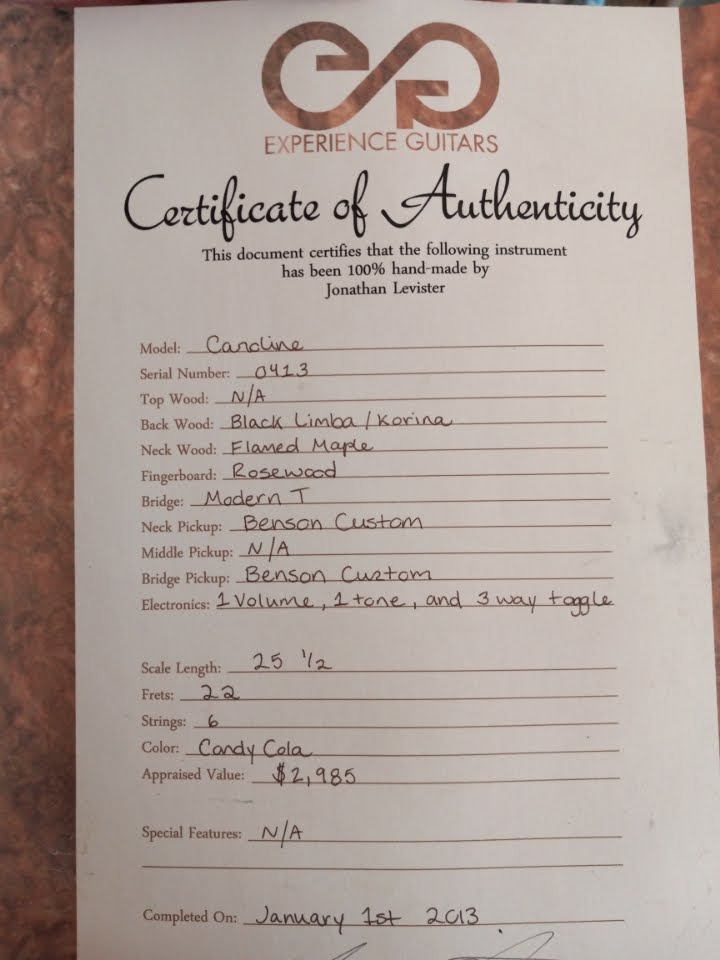 EXPERIENCE GUITARS
Certificate of Authenticity
This document certifies that the following instrument
has been 100% hand-made by
Jonathan Levister
Model: Caroline
Serial Number: 0413
Top Wood: N/A
Back Wood: Black Limba/Korina
Neck Wood: Flamed Maple
Fingerboard: Rosewood
Bridge: Modern T
Neck Pickup: Benson Custom
Middle Pickup: N/A
Bridge Pickup: Benson Custom
Electronics: 1 Volume, 1 tone, and 3 way toggle
Scale Length: 25 1/2
Frets: 22
Strings: 6
Color: Candy Cola
Appraised Value: $2,985
Special Features: N/A
Completed On: January 1st 2013